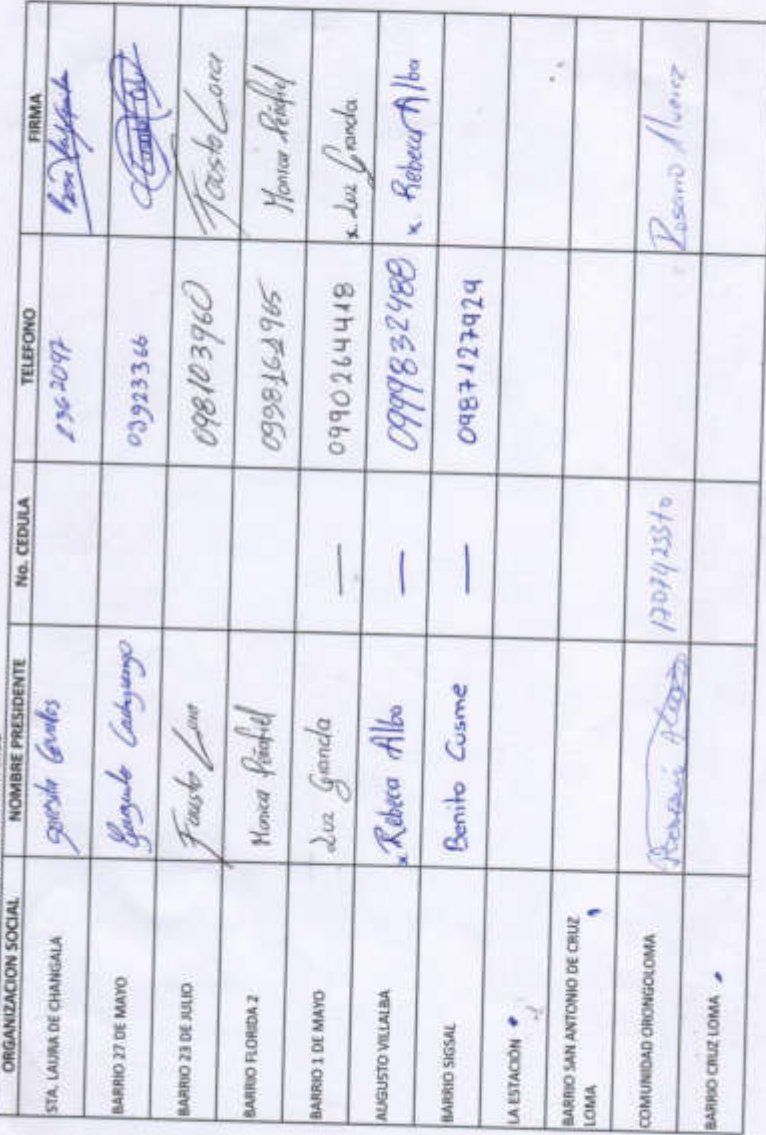 ORGANIZACION SOCIAL NOMBRE PRESIDENTE No. CEDULA TELEFONO FIRMA
STA. LAURA DE CHANGALA 2362097
BARRIO 27 DE MAYO Gonzalo 03923366
BARRIO 23 DE JULIO Fausto Lara 098103960 Fausto Lara
BARRIO FLORIDA 2 Monica Peñafiel 0998161965 Monica Peñafiel
BARRIO 1 DE MAYO Luz Granda — 0990264418 x. Luz Granda
AUGUSTO VILLALBA x Rebeca Alba — 0999832488 x. Rebeca Alba
BARRIO SIGSAL Benito Cusme — 0987127929
LA ESTACIÓN
BARRIO SAN ANTONIO DE CRUZ
LOMA
COMUNIDAD ORONGOLOMA 1707423310 Rosario
BARRIO CRUZ LOMA